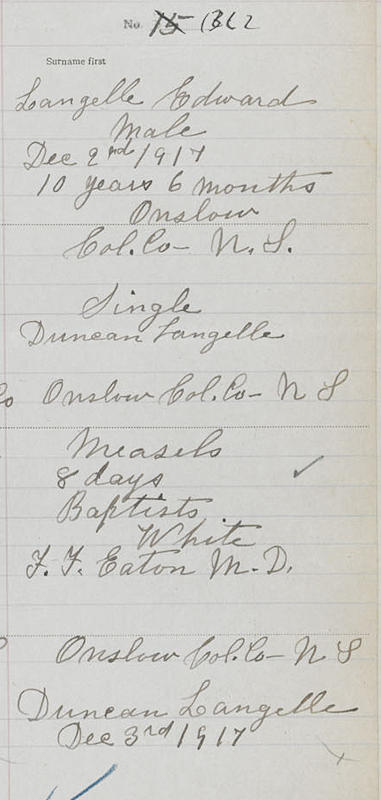 No. 15 1362
Surname first
Langelle Edward
Male
Dec 2nd/1917
10 years 6 months
Onslow
Col. Co- N. S.
Single
Duncan Langelle
Co Onslow Col. Co- N S
Measels
8 days
Baptists
White
F. F. Eaton M. D.
Onslow Col. Co- N S
Duncan Langelle
Dec 3rd/1917